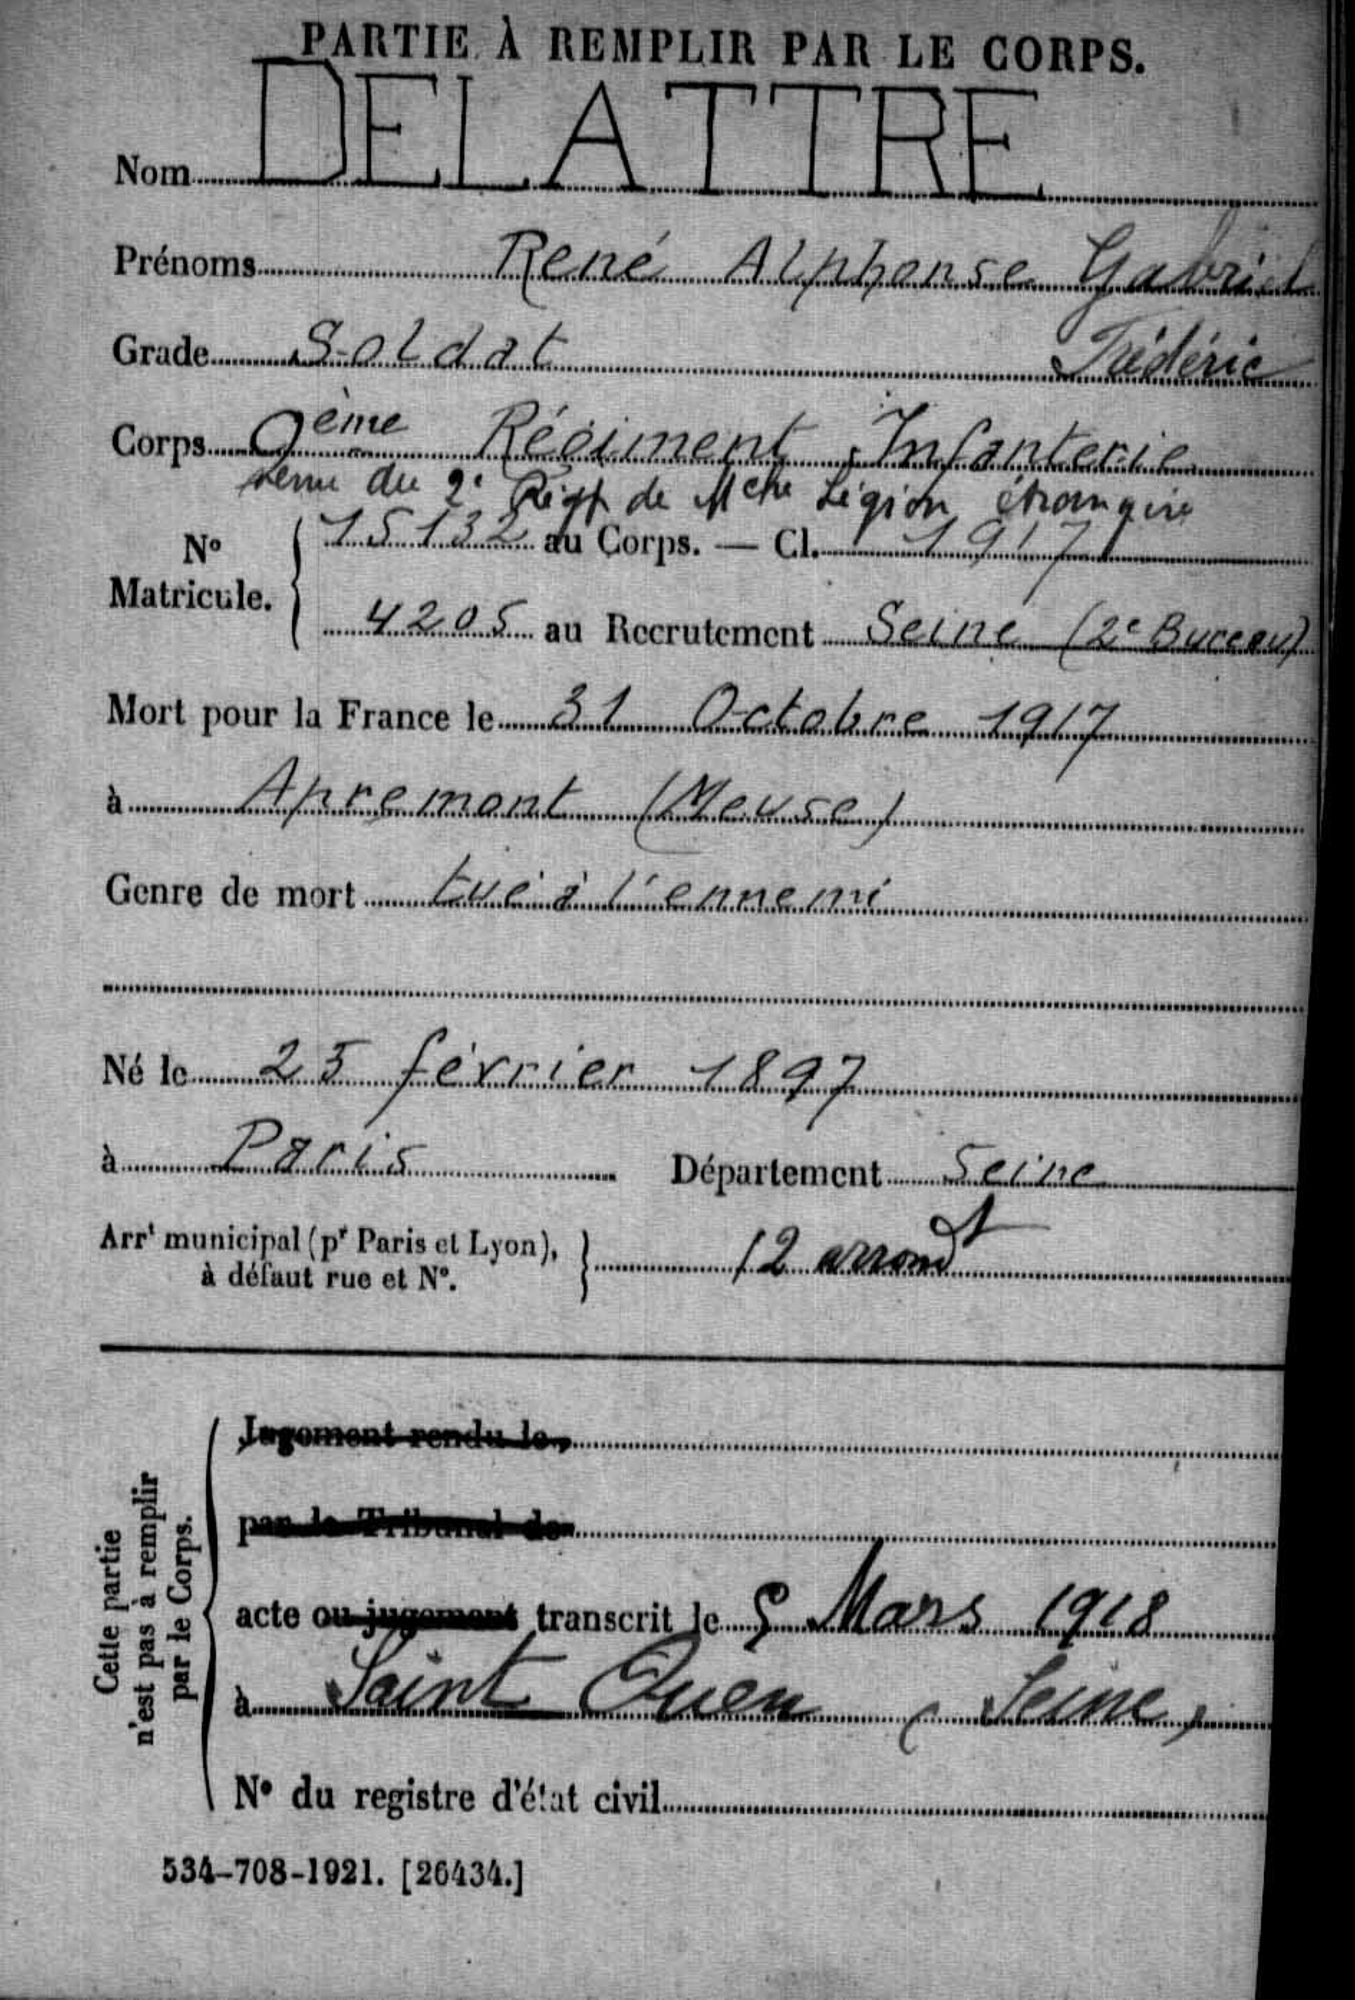 PARTIE À REMPLIR PAR LE CORPS.
Nom DELATTRE
Prénoms René Alphonse Gabriel
Frédéric
Grade Soldat
Corps 9ème Régiment Infanterie
venu du 2e Régt de Mche Légion étrangère
No Matricule. { 15132 au Corps. — Cl. 1917
4205 au Recrutement Seine (2e Bureau)
Mort pour la France le 31 Octobre 1917
à Apremont (Meuse)
Genre de mort tué à l'ennemi
Né le 25 février 1897
à Paris Département Seine
Arrt municipal (pr Paris et Lyon), à défaut rue et No. } 12 arrondt
Cette partie n'est pas à remplir par le Corps.
Jugement rendu le
par le Tribunal de
acte ou jugement transcrit le 5 Mars 1918
à Saint Ouen (Seine)
No du registre d'état civil
534-708-1921. [26434.]